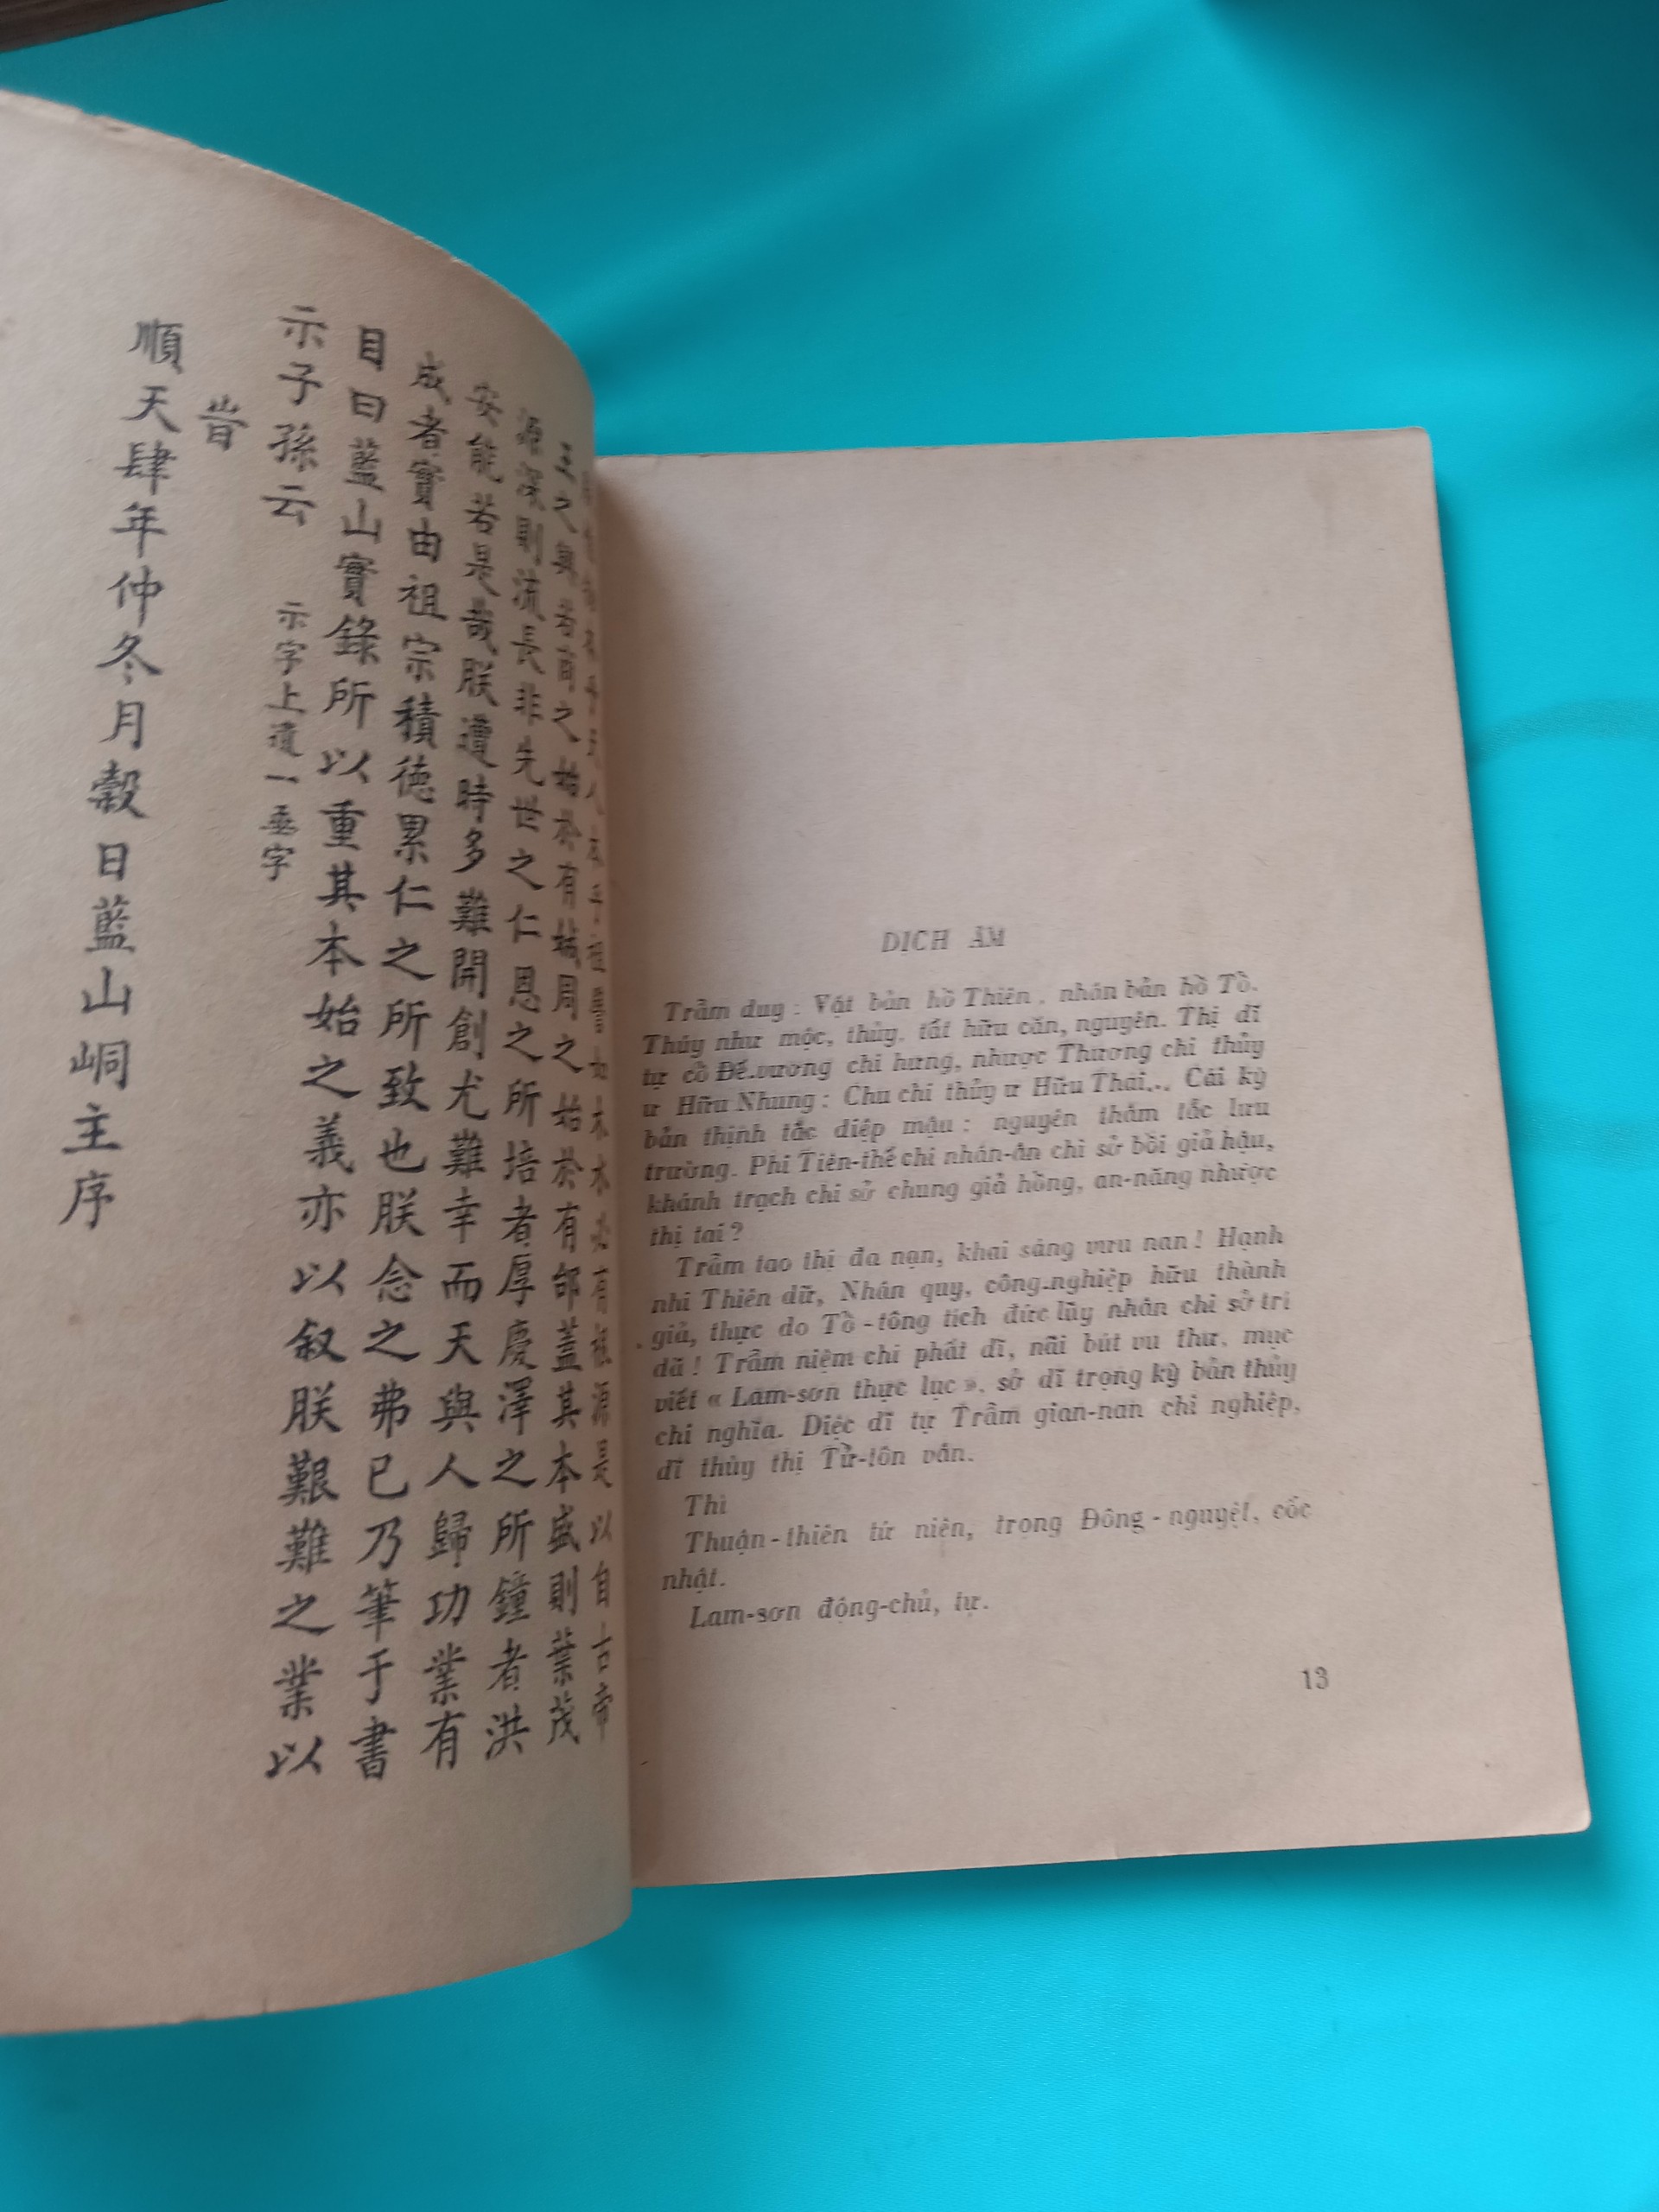 本乎天人本乎祖譬如木水必有根源是以自古帝
王之興若商之始於有娀周之始於有邰蓋其本盛則葉茂
源深則流長非先世之仁恩之所培者厚慶澤之所鐘者洪
安能若是哉朕遭時多難開創尤難幸而天與人歸功業有
成者實由祖宗積徳累仁之所致也朕念之弗已乃筆于書
目曰藍山實錄所以重其本始之義亦以叙朕艱難之業以
示子孫云 示字上遺一垂字
旹
順天肆年仲冬月穀日藍山峒主序
DỊCH ÂM
Trẫm duy : Vật bản hồ Thiên, nhân bản hồ Tổ.
Thúy như mộc, thủy, tất hữu căn, nguyên. Thị dĩ
tự cồ Đế-vương chi hưng, nhược Thương chi thủy
ư Hữu Nhung : Chu chi thủy ư Hữu Thai... Cái kỳ
bản thịnh tắc diệp mậu : nguyên thâm tắc lưu
trường. Phi Tiên-thế chi nhân-ân chi sở bồi giả hậu,
khánh trạch chi sở chung giả hồng, an-năng nhược
thị tai ?
Trẫm tao thị đa nạn, khai sáng vưu nan ! Hạnh
nhi Thiên dữ, Nhân quy, công-nghiệp hữu thành
giả, thực do Tổ-tông tích đức lũy nhân chi sở trí
dã ! Trẫm niệm chi phất dĩ, nãi bút vu thư, mục
viết « Lam-sơn thực lục », sở dĩ trọng kỳ bản thủy
chi nghĩa. Diệc dĩ tự Trẫm gian-nan chi nghiệp,
dĩ thùy thị Tử-tôn vân.
Thì
Thuận-thiên tứ niên, trọng Đông-nguyệt, cốc
nhật.
Lam-sơn động-chủ, tự.
13